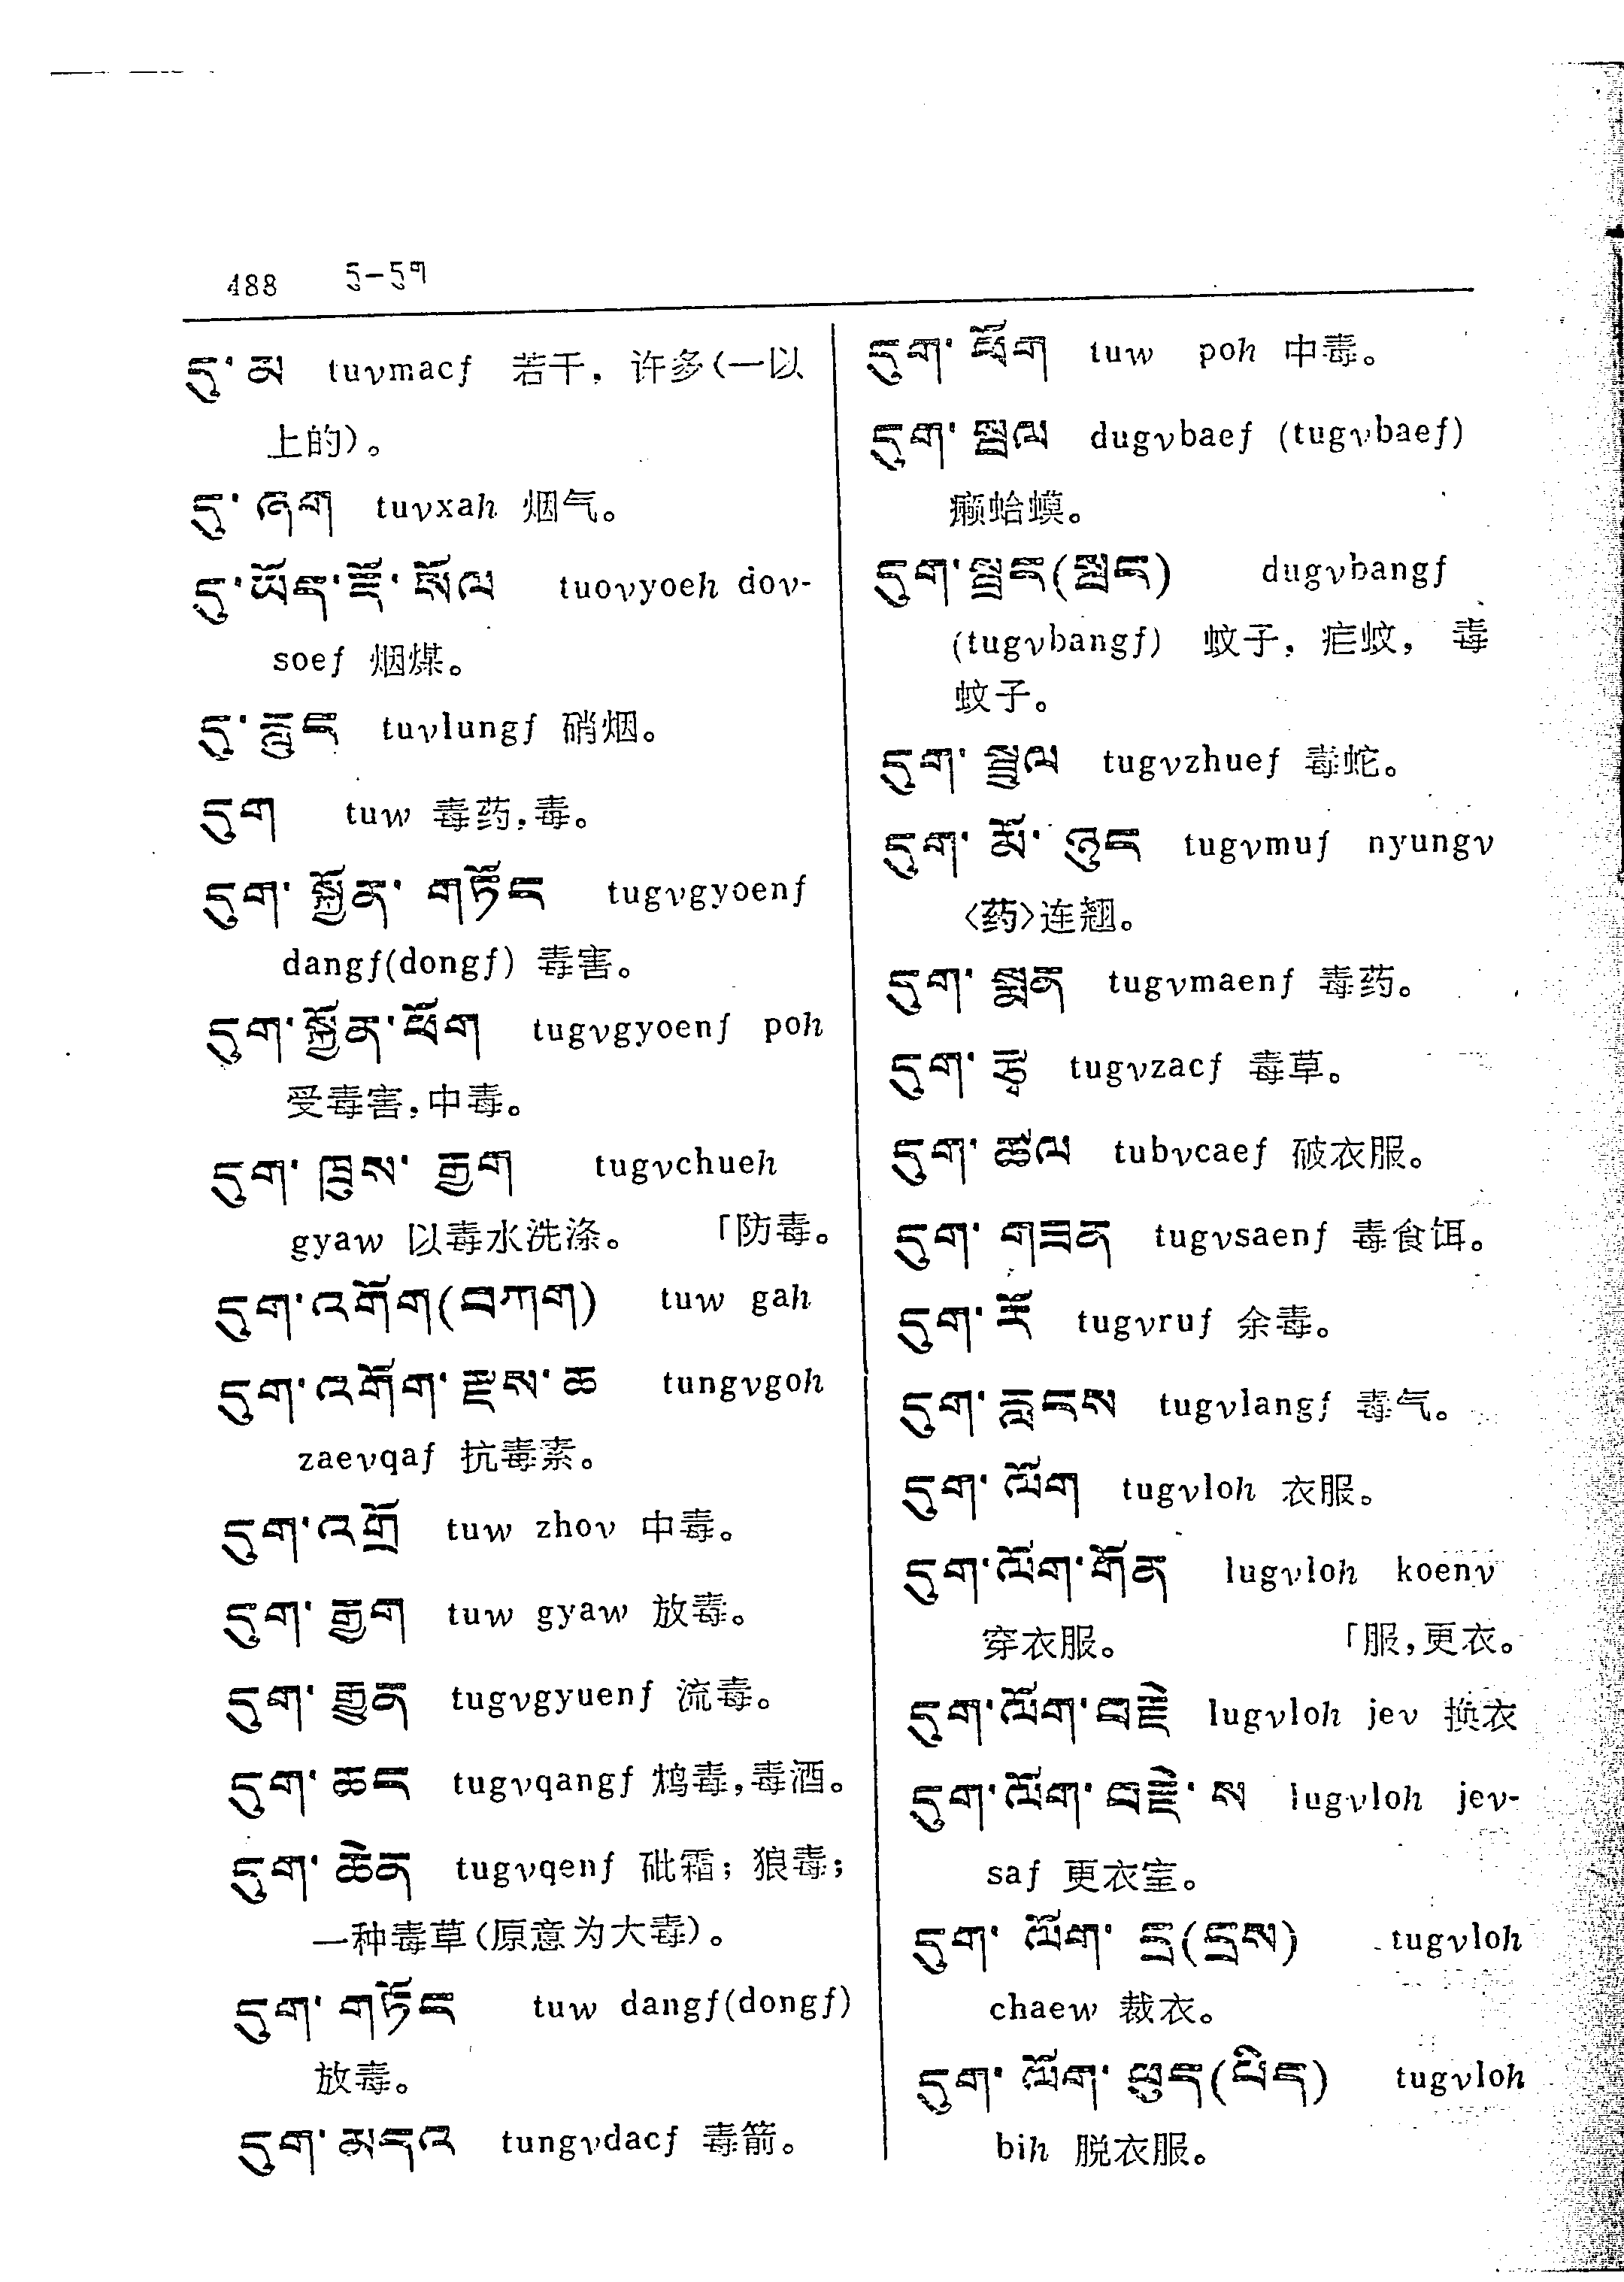 488 དུ—དུག
དུ་མ tuvmacf 若干，许多(一以
上的)。
དུ་ཞག tuvxah 烟气。
དུ་ཡོག་རྡོ་སོལ tuovyoeh dov-
soef 烟煤。
དུ་རླུང tuvlungf 硝烟。
དུག tuw 毒药，毒。
དུག་སྐྱོན་གཏོང tugvgyoenf
dangf(dongf) 毒害。
དུག་སྐྱོན་ཕོག tugvgyoenf poh
受毒害，中毒。
དུག་ཁྲུས་རྒྱག tugvchueh
gyaw 以毒水洗涤。 「防毒。
དུག་འགོག(བཀག) tuw gah
དུག་འགོག་རྫས་ཆ tungvgoh
zaevqaf 抗毒素。
དུག་འགྲོ tuw zhov 中毒。
དུག་རྒྱག tuw gyaw 放毒。
དུག་རྒྱུན tugvgyuenf 流毒。
དུག་ཆང tugvqangf 鸩毒，毒酒。
དུག་ཆེན tugvqenf 砒霜；狼毒；
一种毒草(原意为大毒)。
དུག་གཏོང tuw dangf(dongf)
放毒。
དུག་མདའ tungvdacf 毒箭。
དུག་ཕོག tuw poh 中毒。
དུག་སྦལ dugvbaef (tugvbaef)
癞蛤蟆。
དུག་སྦྲང(སྦྲང) dugvbangf
(tugvbangf) 蚊子，疟蚊，毒
蚊子。
དུག་སྦྲུལ tugvzhuef 毒蛇。
དུག་མོ་ཉུང tugvmuf nyungv
〈药〉连翘。
དུག་སྨན tugvmaenf 毒药。
དུག་རྩྭ tugvzacf 毒草。
དུག་ཚལ tubvcaef 破衣服。
དུག་གཟན tugvsaenf 毒食饵。
དུག་རོ tugvruf 余毒。
དུག་རླངས tugvlangf 毒气。
དུག་ལོག tugvloh 衣服。
དུག་ལོག་གོན lugvloh koenv
穿衣服。 「服，更衣。
དུག་ལོག་བརྗེ lugvloh jev 换衣
དུག་ལོག་བརྗེ་ས lugvloh jev-
saf 更衣室。
དུག་ལོག་དྲ(དྲས) tugvloh
chaew 裁衣。
དུག་ལོག་ཕུད(ཕིད) tugvloh
bih 脱衣服。